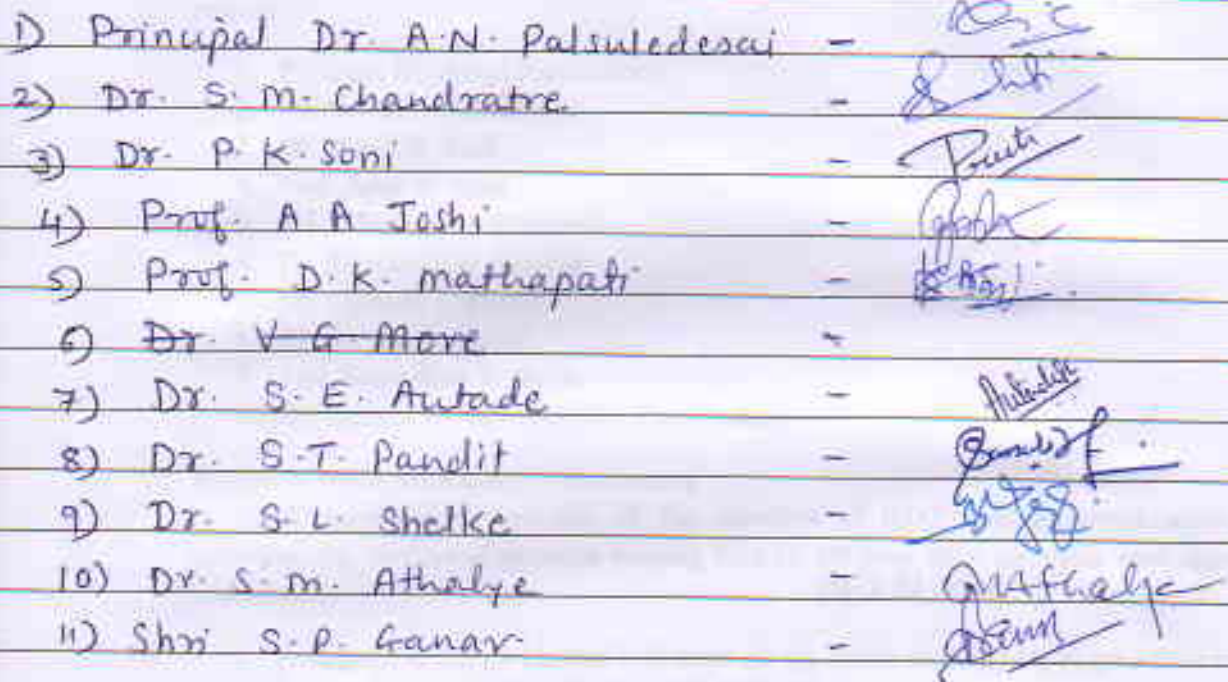 1) Principal Dr. A.N. Palsuledesai -
2) Dr. S. M. Chandratre -
3) Dr. P. K. Soni -
4) Prof. A A Joshi -
5) Prof. D. K. Mathapati -
6) Dr. V G. More -
7) Dr. S. E. Autade - Autade
8) Dr. S.T. Pandit -
9) Dr. S. L. Shelke -
10) Dr. S. M. Athalye - SMAthalye
11) Shri S. P. Ganar -